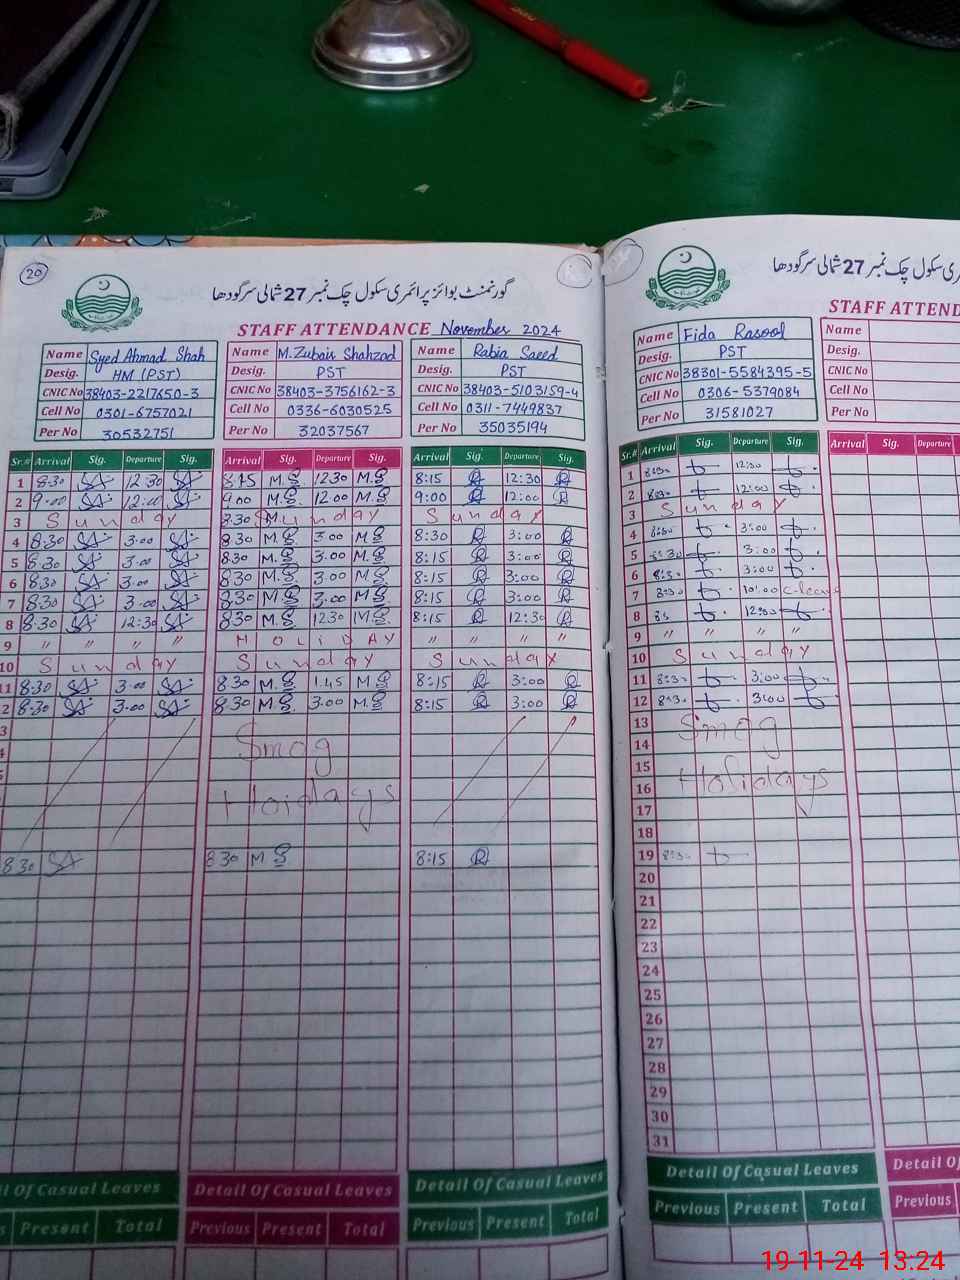 20
گورنمنٹ بوائز پرائمری سکول چک نمبر 27 شمالی سرگودھا
STAFF ATTENDANCE November 2024
Name Syed Ahmad Shah
Desig. HM (PST)
CNIC No 38403-2217650-3
Cell No 0301-6757021
Per No 30532751
Name M.Zubair Shahzad
Desig. PST
CNIC No 38403-3756162-3
Cell No 0336-6030525
Per No 32037567
Name Rabia Saeed
Desig. PST
CNIC No 38403-5103159-4
Cell No 0311-7449837
Per No 35035194
Sr.# Arrival Sig. Departure Sig. Arrival Sig. Departure Sig. Arrival Sig. Departure Sig.
1 8:30 12:30 8:15 M.S 12:30 M.S 8:15 12:30
2 9:00 12:00 9:00 M.S 12:00 M.S 9:00 12:00
3 Sunday 8:30 Sunday Sunday
4 8:30 3:00 8:30 M.S 3:00 M.S 8:30 3:00
5 8:30 3:00 8:30 M.S 3:00 M.S 8:15 3:00
6 8:30 3:00 8:30 M.S 3:00 M.S 8:15 3:00
7 8:30 3:00 8:30 M.S 3:00 M.S 8:15 3:00
8 8:30 12:30 8:30 M.S 12:30 M.S 8:15 12:30
9 " " " " HOLIDAY " " " "
10 Sunday Sunday Sunday
11 8:30 3:00 8:30 M.S 1:45 M.S 8:15 3:00
12 8:30 3:00 8:30 M.S 3:00 M.S 8:15 3:00
Smog
Hoidays
8:30 8:30 M.S 8:15
Detail Of Casual Leaves Detail Of Casual Leaves Detail Of Casual Leaves
Present Total Previous Present Total Previous Present Total
سکول چک نمبر 27 شمالی سرگودھا
STAFF ATTEND
Name Fida Rasool
Desig. PST
CNIC No 38301-5584395-5
Cell No 0306-5379084
Per No 31581027
Name
Desig.
CNIC No
Cell No
Per No
Sr.# Arrival Sig. Departure Sig. Arrival Sig. Departure
1 8:30 12:30
2 8:30 12:00
3 Sunday
4 8:30 3:00
5 8:30 3:00
6 8:30 3:00
7 8:30 10:00 C-leave
8 8:30 12:30
9 " " " "
10 Sunday
11 8:30 3:00
12 8:30 3:00
13 Smog
14
15 Holidays
16
17
18
19 8:30
20
21
22
23
24
25
26
27
28
29
30
31
Detail Of Casual Leaves Detail Of
Previous Present Total Previous
19-11-24 13.24